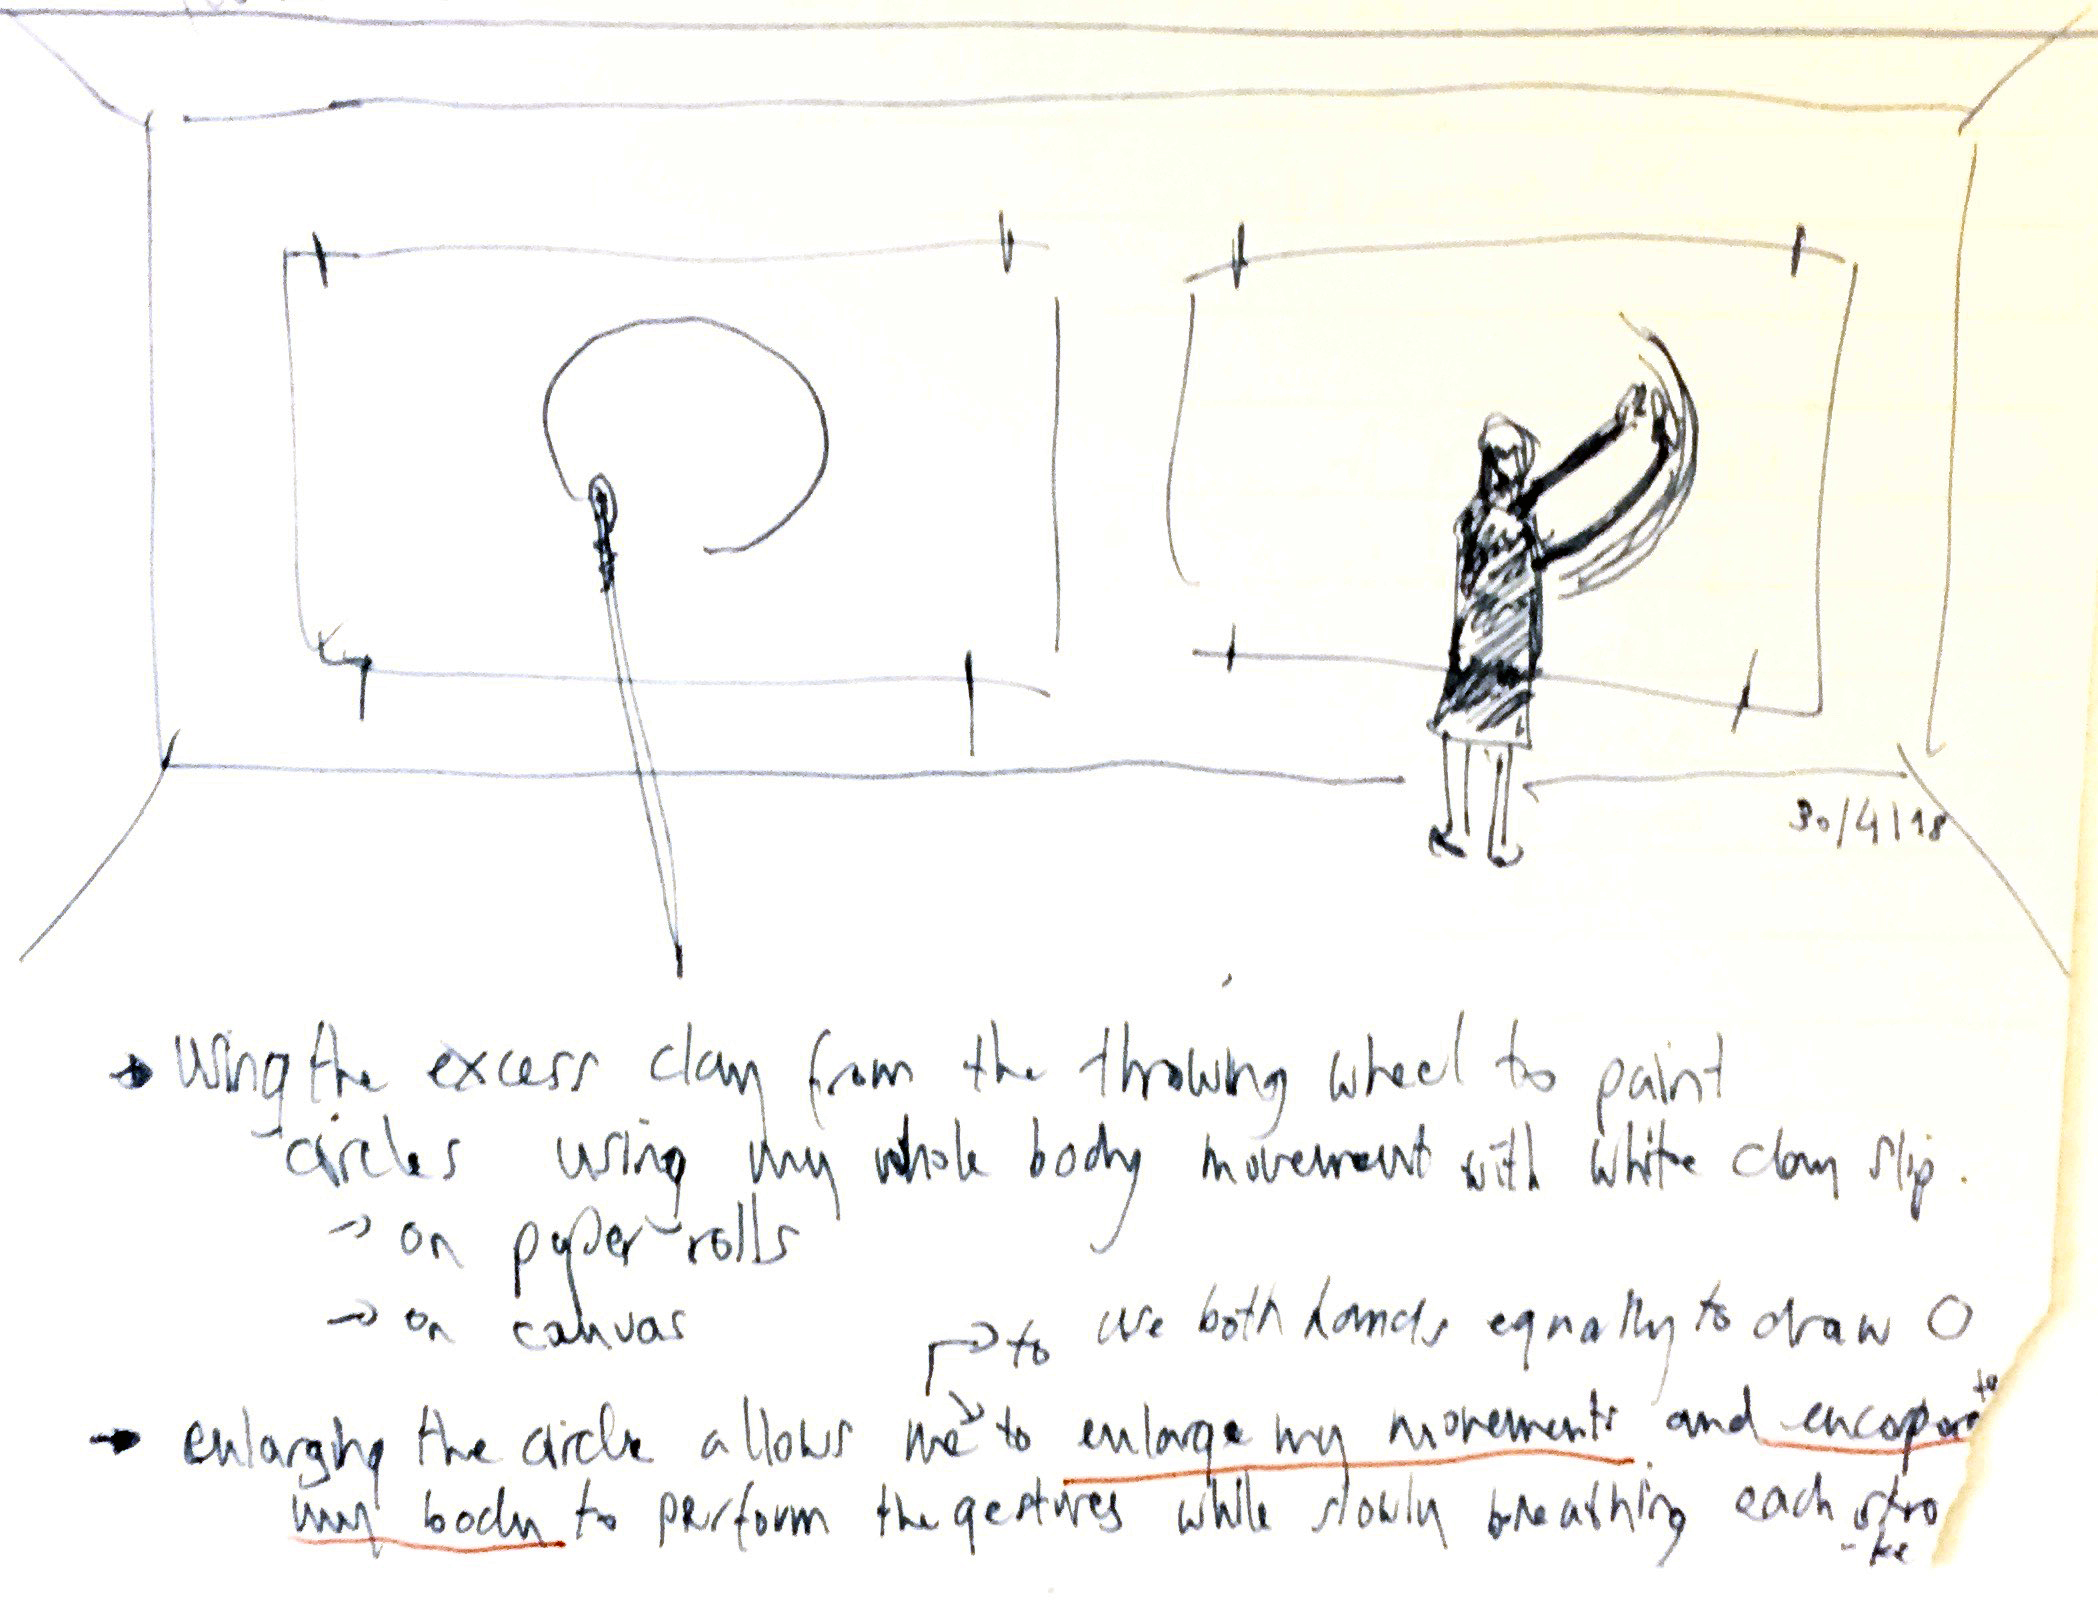 30/4/18
→ using the excess clay from the throwing wheel to paint
circles using my whole body movement with white clay slip.
→ on paper rolls
→ on canvas
→ to use both hands equally to draw O
→ enlarging the circle allows me to enlarge my movements and encorporate
my body to perform the gestures while slowly breathing each stro
-ke